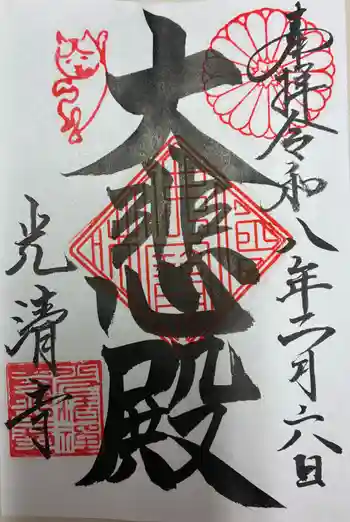 奉拝令和八年二月六日
大悲殿
光清寺